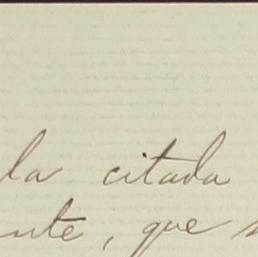 la citada
nte, que